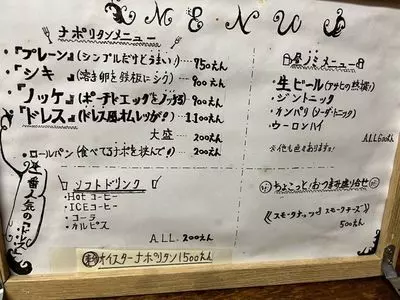 MENU
ナポリタンメニュー
・『プレーン』(シンプルだけどうまい!)‥‥750えん
・『シキ』(溶き卵を鉄板にシク)‥‥900えん
・『ノッケ』(ポーチドエッグをノッケる)900えん
・『ドレス』(ドレス風オムレツが!)1,100えん
大盛‥‥200えん
・ロールパン(食べてるナポを挟んで!)‥‥200えん
一番人気のドレス
ソフトドリンク
・Hotコーヒー
・ICEコーヒー
・コーラ
・カルピス
ALL 200えん
オイスターナポリタン1500えん
昼ノミメニュー
・生ビール(アサヒの熟撰)
・ジントニック
・カンパリ(ソーダ・トニック)
・ウーロンハイ
ALL 600えん
※他も色々あります!
ちょこっとおつまみ盛り合せ
《スモークナッツ スモークチーズ》
500えん